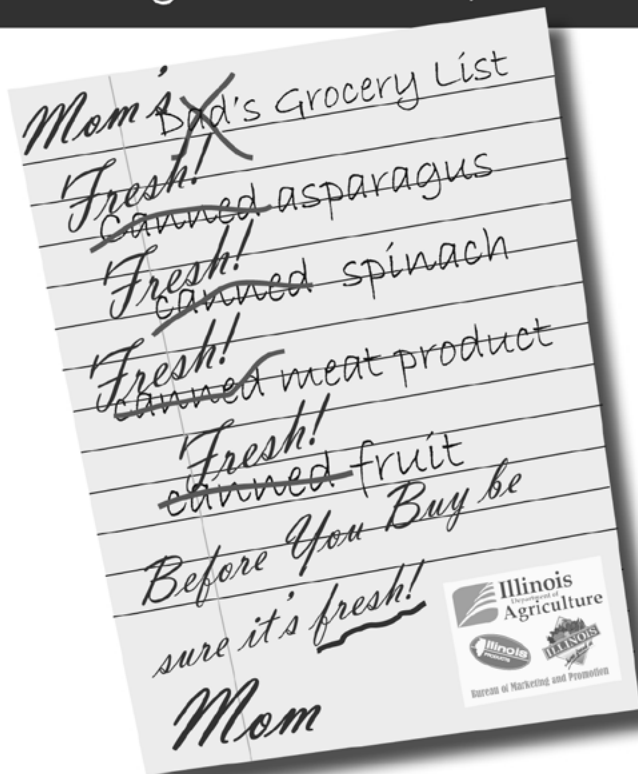 Mom's Dad's Grocery List
Fresh!
canned asparagus
Fresh!
canned spinach
Fresh!
canned meat product
Fresh!
canned fruit
Before You Buy be
sure it's fresh!
Mom
Illinois
Department of
Agriculture
Illinois
PRODUCTS
ILLINOIS
Bureau of Marketing and Promotion